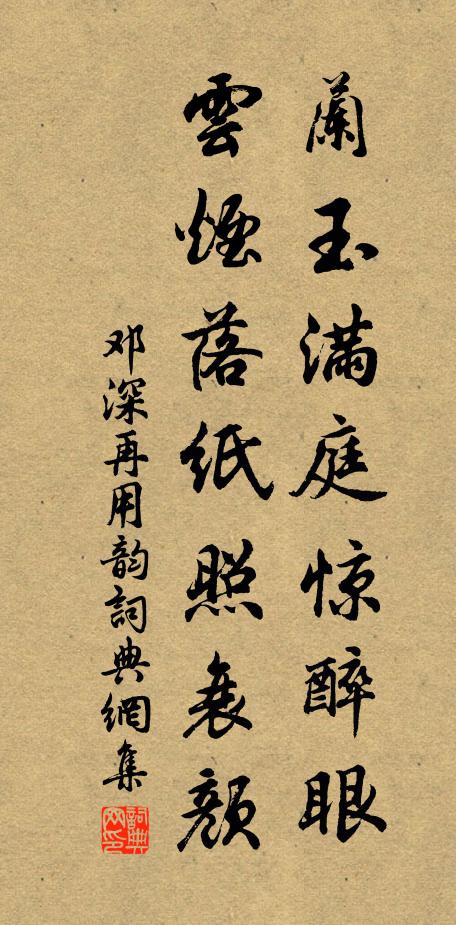 蘭玉滿庭惊醉眼
雲煙落紙照衰顏
邓深再用韵詞典網集
詞典网印